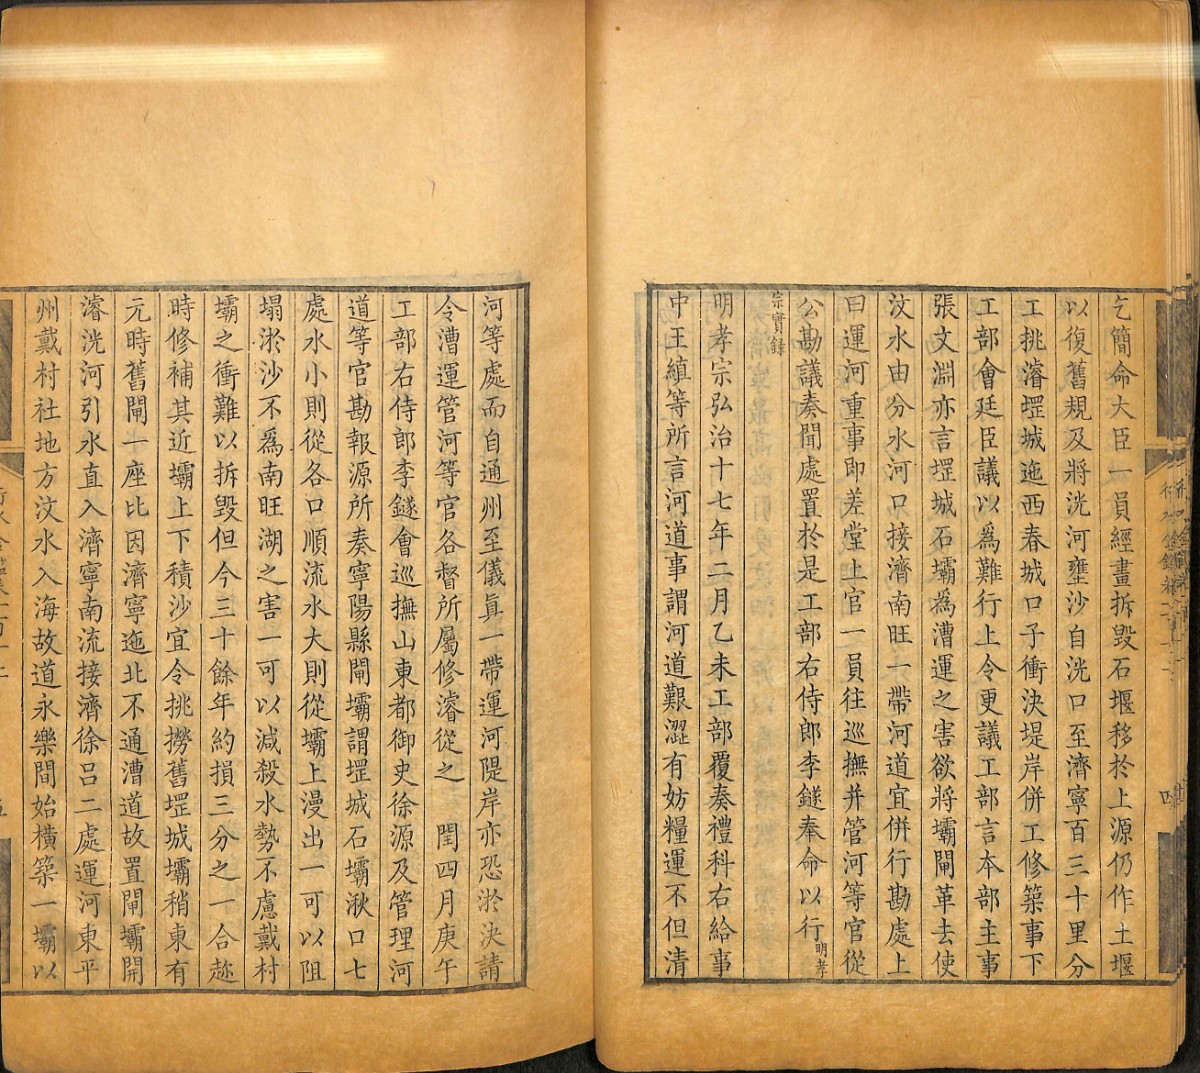 乞簡命大臣一員經畫拆毀石堰移於上源仍作土堰
以復舊規及將洸河壅沙自洸口至濟寧百三十里分
工挑濬堽城迤西春城口子衝決堤岸併工修築事下
工部會廷臣議以爲難行上令更議工部言本部主事
張文淵亦言堽城石壩爲漕運之害欲將壩閘革去使
汶水由分水河口接濟南旺一帶河道宜併行勘處上
曰運河重事即差堂上官一員往巡撫并管河等官從
公勘議奏聞處置於是工部右侍郎李鐩奉命以行明孝
宗實錄
明孝宗弘治十七年二月乙未工部覆奏禮科右給事
中王縝等所言河道事謂河道艱澀有妨糧運不但清
河等處而自通州至儀眞一帶運河隄岸亦恐淤決請
令漕運管河等官各督所屬修濬從之 閏四月庚午
工部右侍郎李鐩會巡撫山東都御史徐源及管理河
道等官勘報源所奏寧陽縣閘壩謂堽城石壩湫口七
處水小則從各口順流水大則從壩上漫出一可以阻
塌淤沙不爲南旺湖之害一可以減殺水勢不慮戴村
壩之衝難以拆毀但今三十餘年約損三分之一合趂
時修補其近壩上下積沙宜令挑撈舊堽城壩稍東有
元時舊閘一座比因濟寧迤北不通漕道故置閘壩開
濬洸河引水直入濟寧南流接濟徐呂二處運河東平
州戴村社地方汶水入海故道永樂間始橫築一壩以